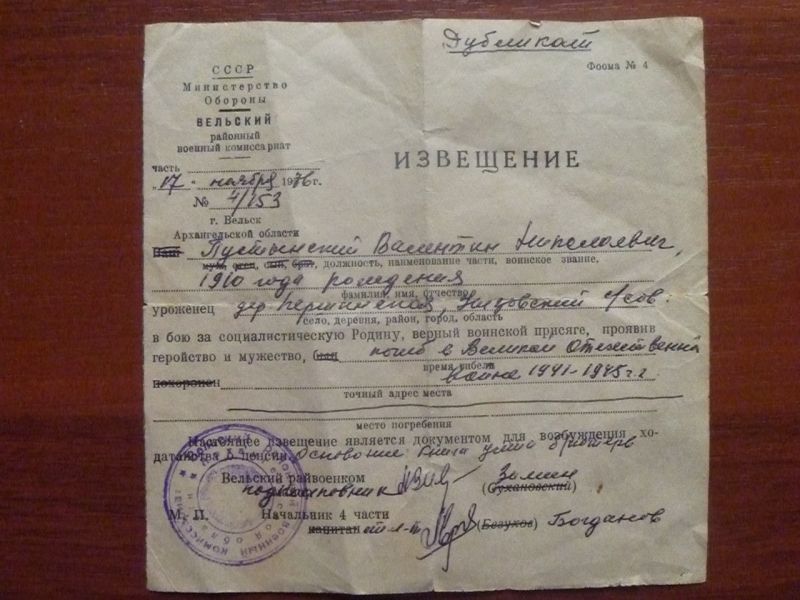 Дубликат
Форма № 4
СССР
Министерство
Обороны
ВЕЛЬСКИЙ
районный
военный комиссариат
часть
17 ноября 1976 г.
№ 4/153
г. Вельск
Архангельской области
ИЗВЕЩЕНИЕ
Ваш Пустынский Валентин Николаевич,
муж, отец, сын, брат, должность, наименование части, воинское звание,
1910 года рождения
фамилия, имя, отчество
уроженец дер. с/сов.
село, деревня, район, город, область
в бою за социалистическую Родину, верный воинской присяге, проявив
геройство и мужество, был погиб в Великой Отечественной
время гибели
войне 1941-1945 г.г.
похоронен
точный адрес места
место погребения
Настоящее извещение является документом для возбуждения хо-
датайства о пенсии. Основание книга учета
Вельский райвоенком
подполковник Зимин
(Сухановский)
М. П. Начальник 4 части
капитан ст. л-т (Безухов) Богданов